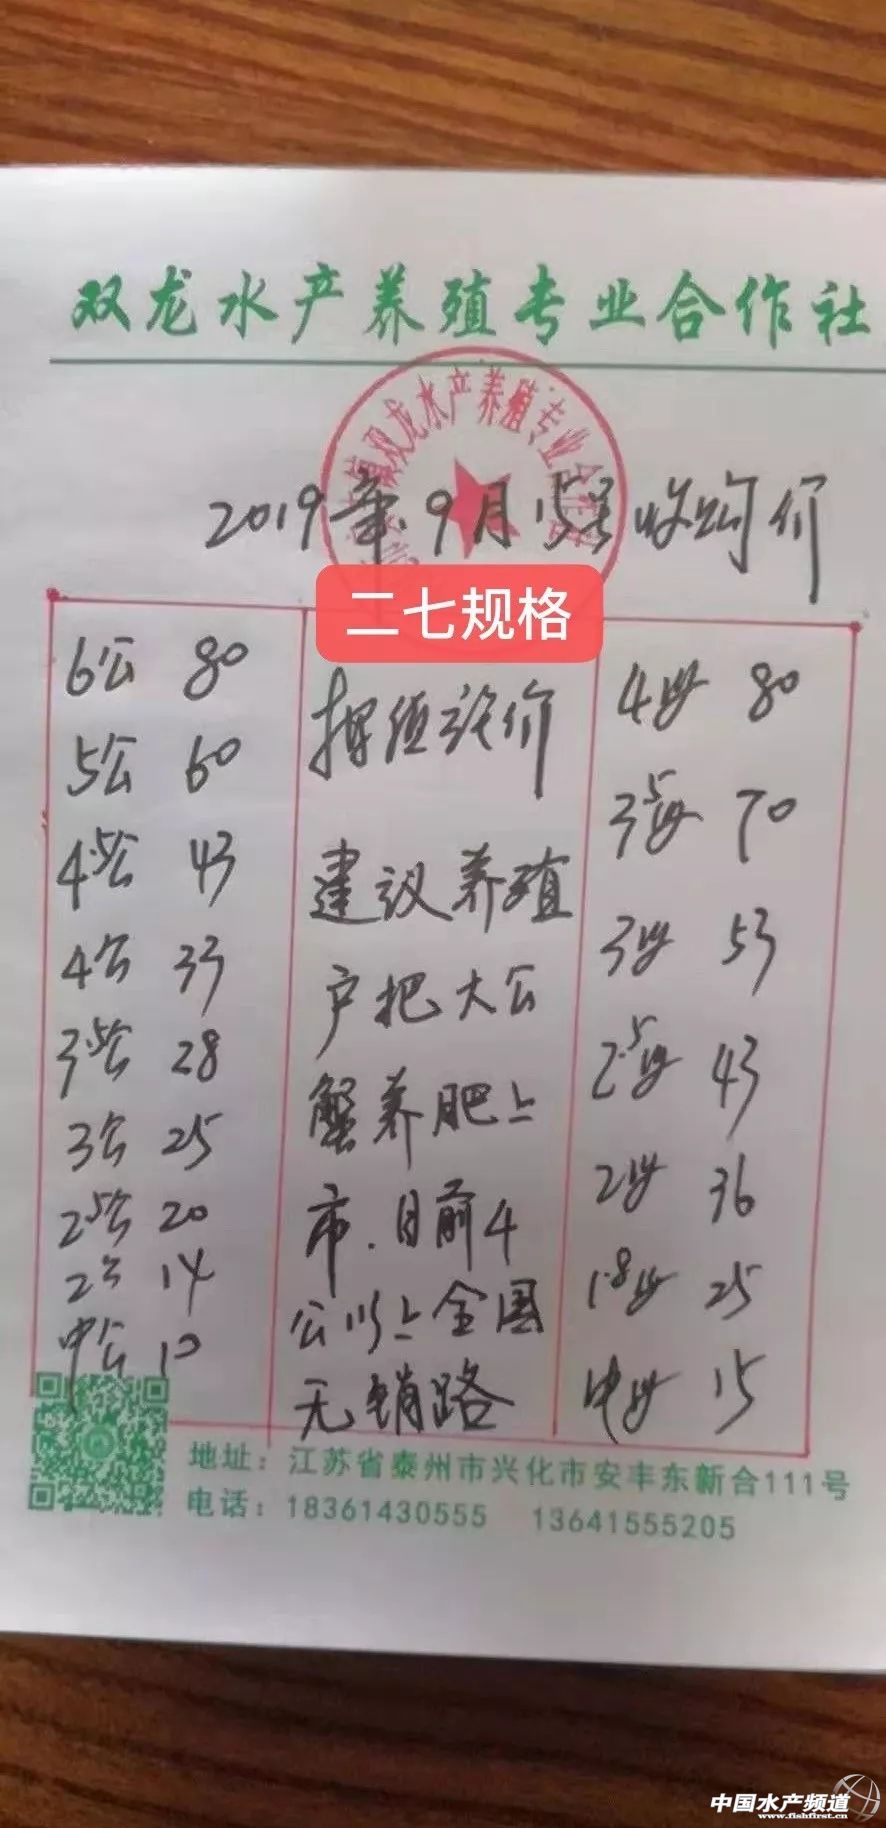 双龙水产养殖专业合作社
双龙水产养殖专业合作社
2019年.9月15号收购价
二七规格
6公 80
5公 60
4.5公 43
4公 33
3.5公 28
3公 25
2.5公 20
2公 14
中公 10
按值论价
建议养殖
户把大公
蟹养肥上
市.目前4
公以上全国
无销路
4母 80
3.5母 70
3母 53
2.5母 43
2母 36
1.8母 25
中母 15
地址：江苏省泰州市兴化市安丰东新合111号
电话：18361430555 13641555205
中国水产频道
www.fishfirst.cn